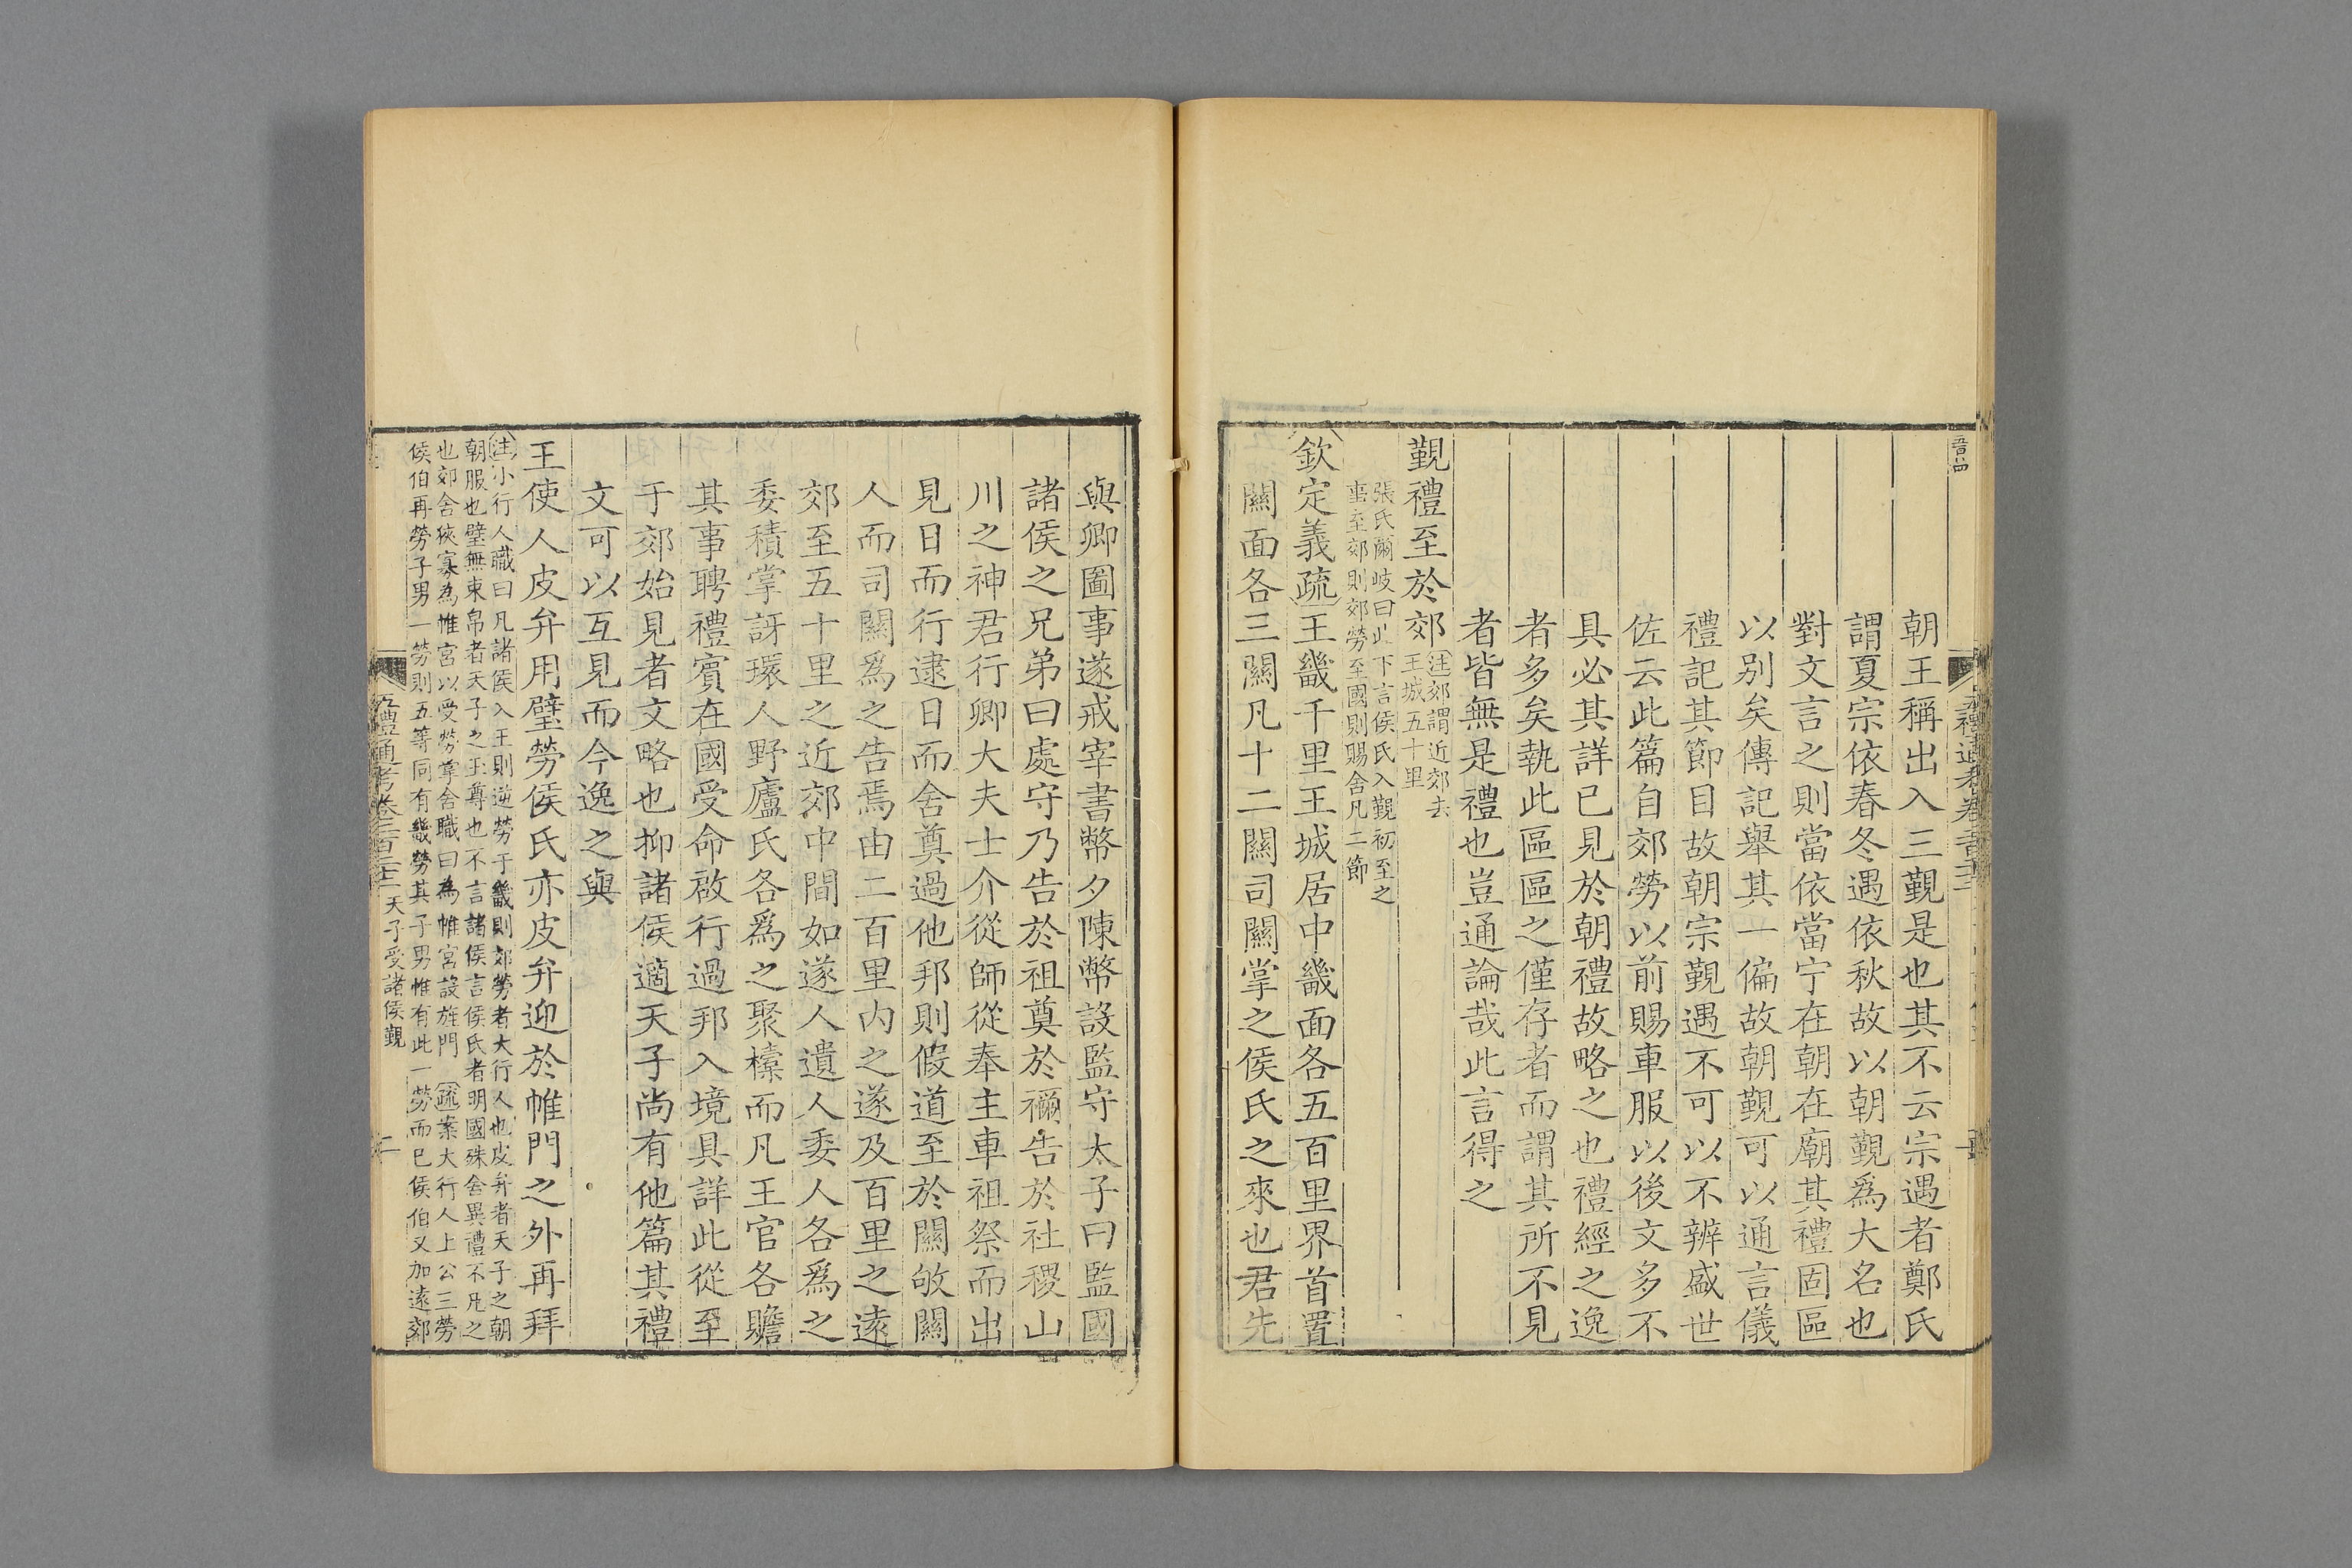 朝王稱出入三覲是也其不云宗遇者鄭氏
謂夏宗依春冬遇依秋故以朝覲爲大名也
對文言之則當依當宁在朝在廟其禮固區
以别矣傳記舉其一偏故朝覲可以通言儀
禮記其節目故朝宗覲遇不可以不辨盛世
佐云此篇自郊勞以前賜車服以後文多不
具必其詳已見於朝禮故略之也禮經之逸
者多矣執此區區之僅存者而謂其所不見
者皆無是禮也豈通論哉此言得之
覲禮至於郊
注郊謂近郊去
王城五十里
張氏爾岐曰此下言侯氏入覲初至之
事至郊則郊勞至國則賜舍凡二節
欽定義疏王畿千里王城居中畿面各五百里界首置
關面各三關凡十二關司關掌之侯氏之來也君先
與卿圖事遂戒宰書幣夕陳幣設監守太子曰監國
諸侯之兄弟曰處守乃告於祖奠於禰告於社稷山
川之神君行卿大夫士介從師從奉主車祖祭而出
見日而行逮日而舍奠過他邦則假道至於關敂關
人而司關爲之告焉由二百里内之遂及百里之遠
郊至五十里之近郊中間如遂人遺人委人各爲之
委積掌訝環人野廬氏各爲之聚櫜而凡王官各贍
其事聘禮賓在國受命啟行過邦入境具詳此從至
于郊始見者文略也抑諸侯適天子尚有他篇其禮
文可以互見而今逸之與
王使人皮弁用璧勞侯氏亦皮弁迎於帷門之外再拜
注小行人職曰凡諸侯入王則逆勞于畿則郊勞者大行人也皮弁者天子之朝
朝服也璧無束帛者天子之玉尊也不言諸侯言侯氏者明國殊舍異禮不凡之
也郊舍狹寡為帷宮以受勞掌舍職曰為帷宮設旌門 疏案大行人上公三勞
侯伯再勞子男一勞則五等同有畿勞其子男惟有此一勞而已侯伯又加遠郊
五禮通考卷二百二十一 天子受諸侯覲